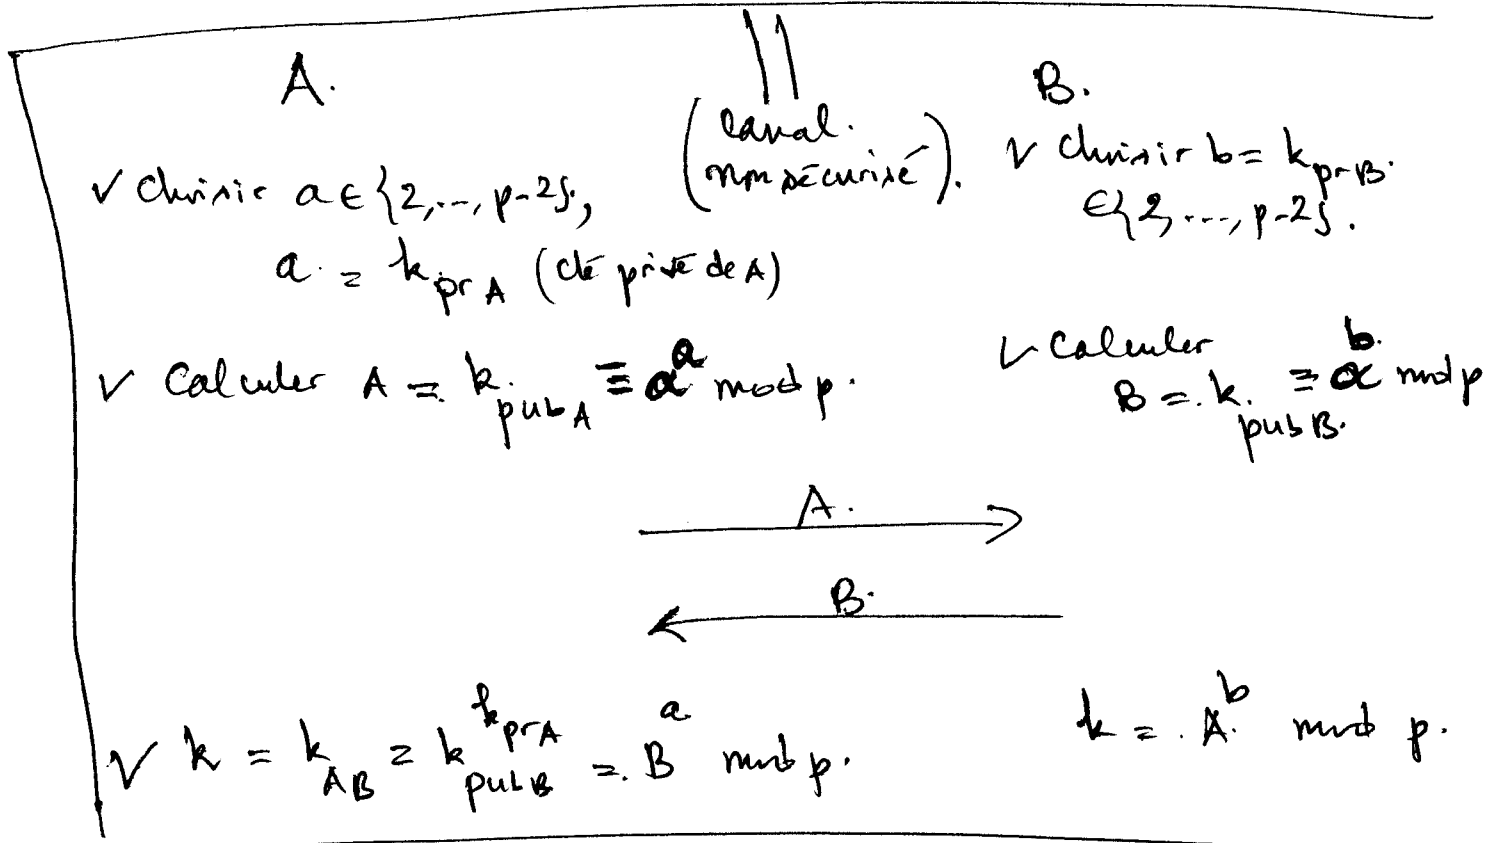 A.
B.
(canal.
non sécurisé).
✓ Choisir a ∈ {2,..., p-2},
a = k_prA (clé privé de A)
✓ Choisir b = k_prB.
∈ {2,...., p-2}.
✓ Calculer A = k_pubA ≡ α^a mod p.
✓ Calculer
B = k_pubB. ≡ α^b mod p
A.
B.
✓ k = k_AB = k_pubB^k_prA = B^a mod p.
k = A^b mod p.